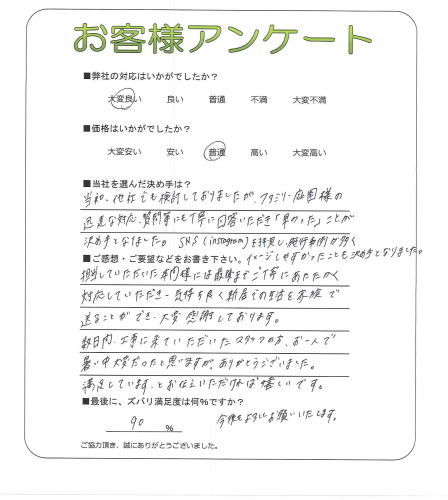 お客様アンケート
■弊社の対応はいかがでしたか？
大変良い 良い 普通 不満 大変不満
■価格はいかがでしたか？
大変安い 安い 普通 高い 大変高い
■当社を選んだ決め手は？
当初、他社でも検討しておりましたが、ファミリー庭園様の
迅速な対応、質問等にも丁寧に回答いただき「早かった」ことが
決め手となりました。SNS（instagram）を拝見し、施行事例が多く
イメージしやすかったことも決め手となりました。
■ご感想・ご要望などをお書き下さい。
担当していただいた本岡様には最後までご丁寧にあたたかく
対応していただき、気持ち良く新居での生活を家族で
送ることができ、大変感謝しております。
数日内、工事に来ていただいたスタッフの方、お一人で
暑い中大変だったと思いますが、ありがとうございました。
満足しています、とお伝えいただければ嬉しいです。
■最後に、ズバリ満足度は何％ですか？
90 ％
今後ともよろしくお願いいたします。
ご協力頂き、誠にありがとうございました。